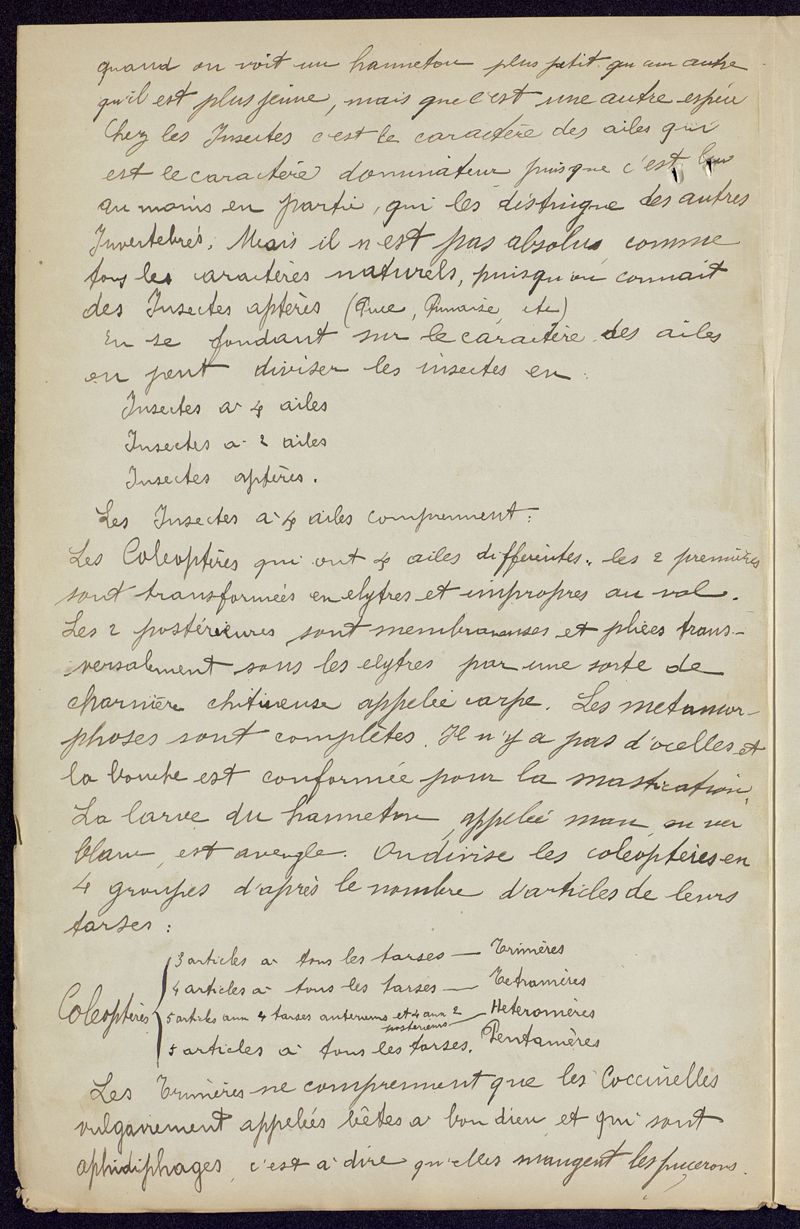 quand on voit un hanneton plus petit qu'un autre
qu'il est plus jeune, mais que c'est une autre espèce
Chez les Insectes c'est le caractère des ailes qui
est le caractère dominateur puisque c'est lui
au moins en partie, qui les distingue des autres
Invertebrés. Mais il n'est pas absolu comme
tous les caractères naturels, puisqu'on connait
des Insectes aptères (Puce, Punaise, etc)
En se fondant sur le caractère des ailes
on peut diviser les insectes en :
Insectes à 4 ailes
Insectes à 2 ailes
Insectes aptères.
Les Insectes à 4 ailes comprennent :
Les Coleoptères qui ont 4 ailes differentes. les 2 premières
sont transformées en elytres et impropres au vol.
Les 2 postérieures sont membraneuses et pliées trans-
versalement sous les elytres par une sorte de
charnière chitineuse appelée carpe. Les metamor-
phoses sont complètes. Il n'y a pas d'ocelles et
la bouche est conformée pour la mastication,
La larve du hanneton, appelée man, ou ver
blanc, est aveugle. On divise les coléoptères en
4 groupes d'après le nombre d'articles de leurs
tarses :
3 articles à tous les tarses — Trimères
4 articles à tous les tarses — Tetramères
Coleoptères
5 articles aux 4 tarses anterieurs et 4 aux 2 posterieurs — Heteromères
5 articles à tous les tarses. Pentamères
Les Trimères ne comprennent que les Coccinelles
vulgairement appelées bêtes à bon dieu et qui sont
aphidiphages, c'est à dire qu'elles mangent les pucerons.